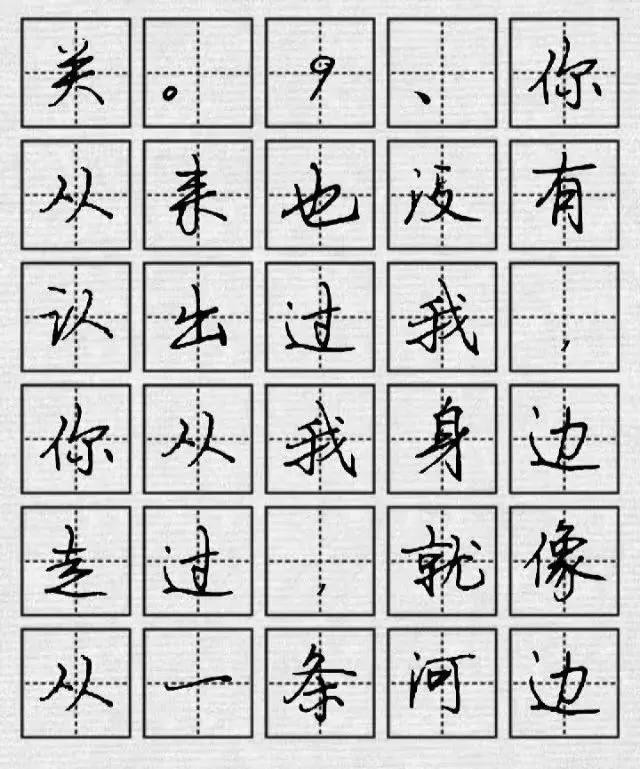 关。9、你
从来也没有
认出过我,
你从我身边
走过,就像
从一条河边